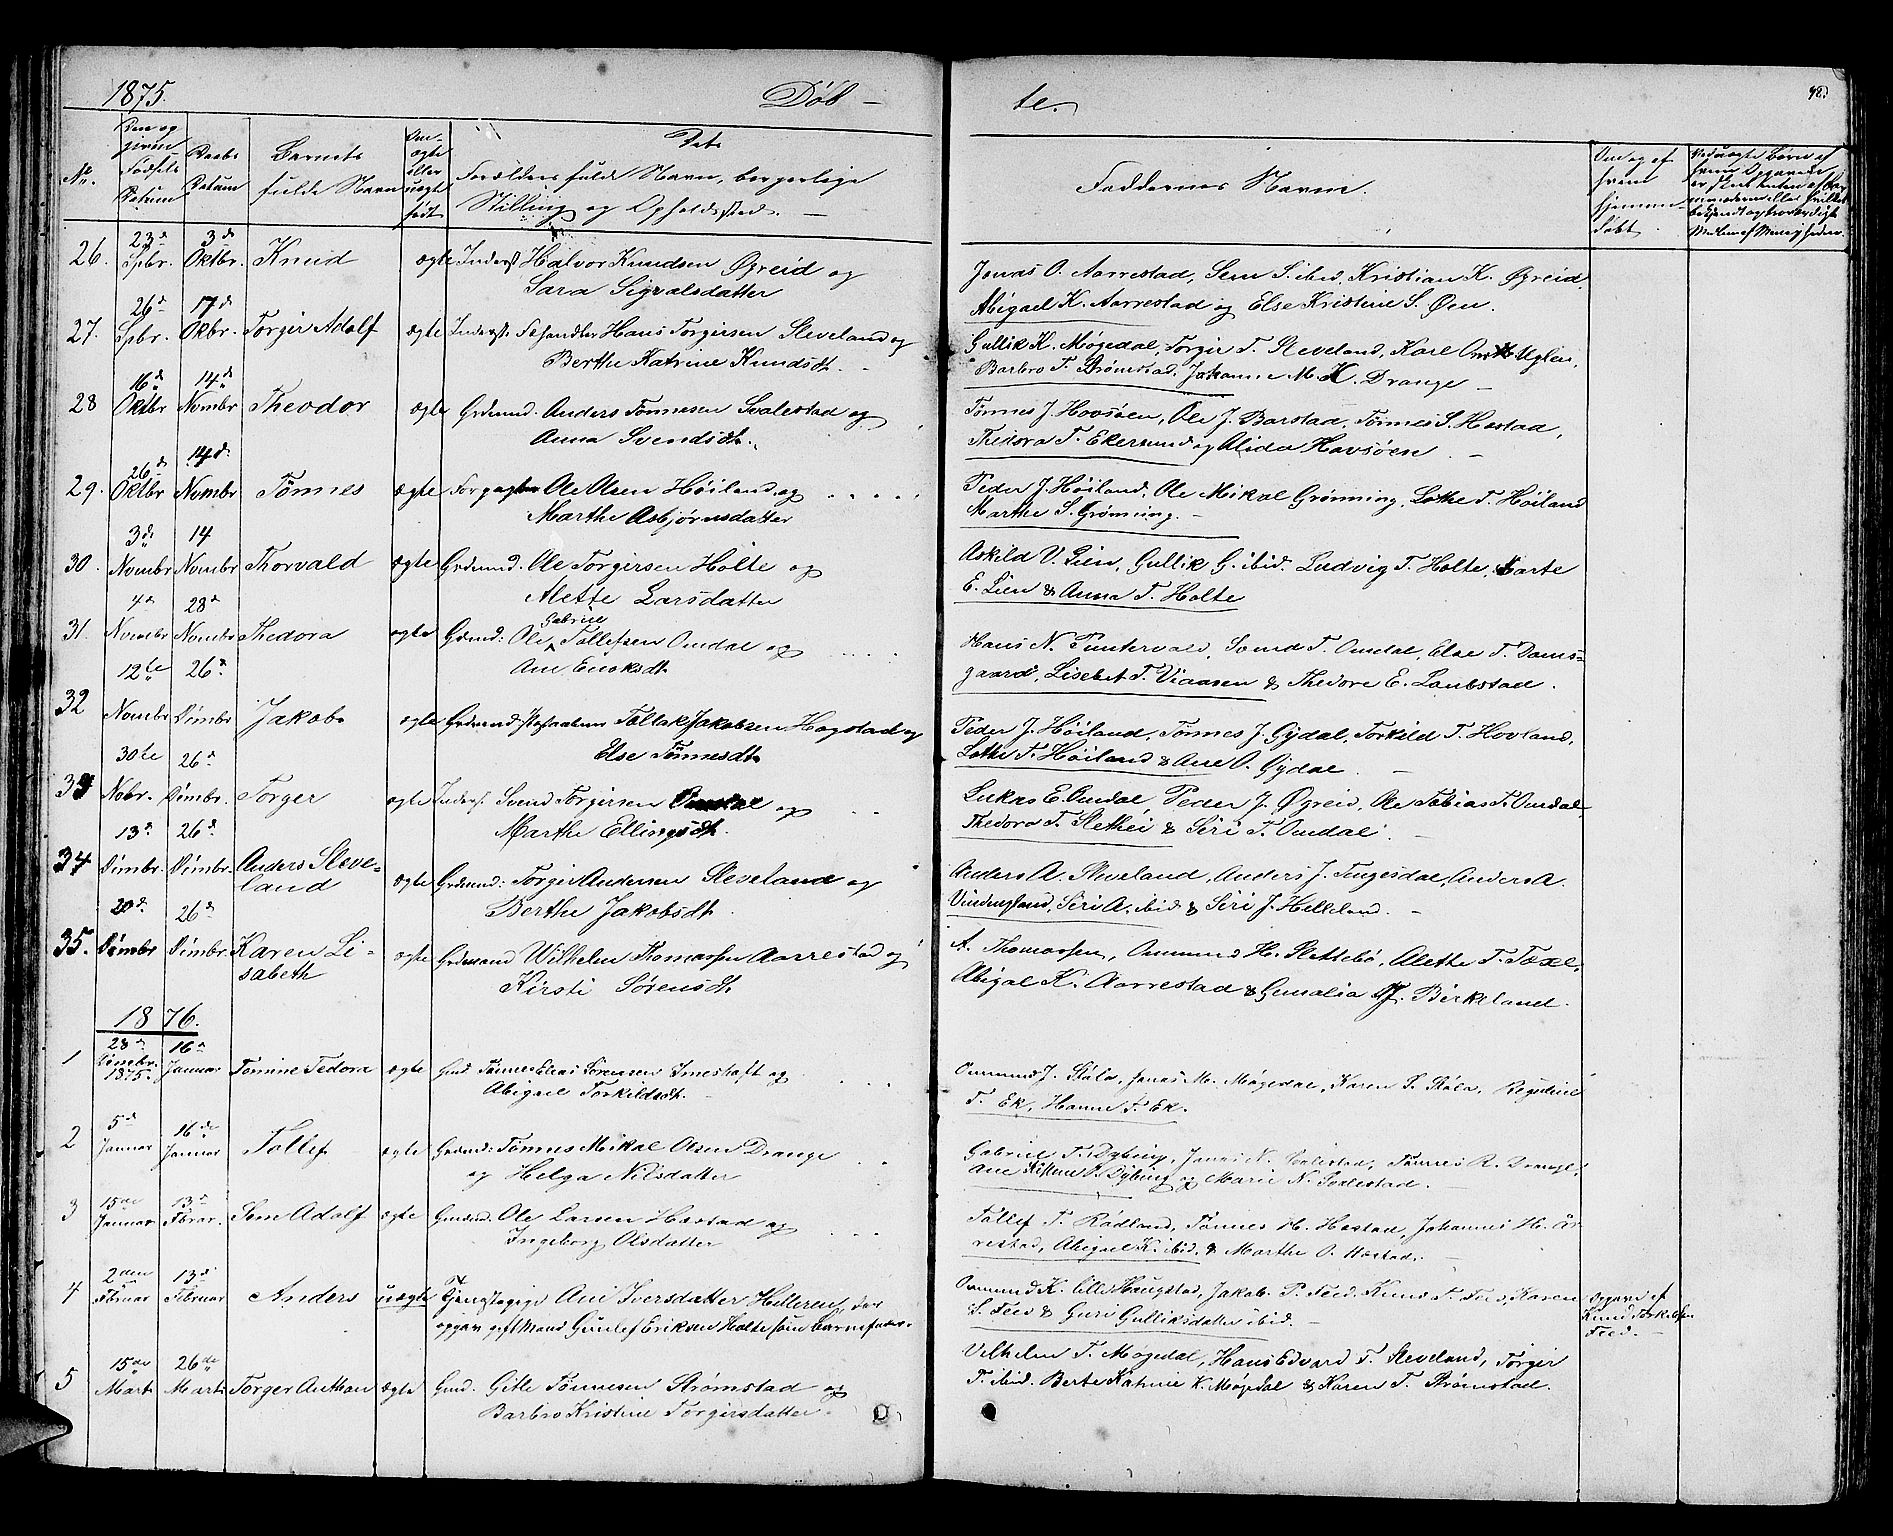 1875.
Døb - te.
98.
No.
Den og
given
Fødsels
Datum
Daabs
Datum
Barnets
fulde Navn
Om
ægte
eller
uægte
født
Dets
Forældres fulde Navn, borgerlige
Stilling og Opholdssted.
Faddernes Navn.
Om og af
hvem
hjemme-
døbt.
26. 23d Spbr. 3d Oktbr. Knud ægte Inderst Halvor Knudsen Øgreid og
Sara Sigvalsdatter
Jonas O. Aarrestad, Sem S. ibid, Kristian K. Øgreid,
Abigael K. Aarrestad og Else Kristine S. Øen.
27. 26d Spbr. 17d Okbr. Torgir Adolf ægte Inderst Fæhandler Hans Torgirsen Sleveland og
Berthe Katrine Knudsdt.
Gullik K. Møgedal, Torgir T. Sleveland, Karl Uglen,
Barbro T. Strømstad, Johanne M. K. Drange
28 16d Oktbr 14d Novmbr Theodor ægte Grdmnd. Anders Tønnesen Svalestad og
Anna Svendsdt.
Tønnes J. Hovsøen, Ole J. Barstad, Tønnes S. Hæstad,
Thedora T. Ekersund og Alida Hovsøen
29. 26d Oktbr 14d Novmbr Tønnes ægte Forpagter Ole Olsen Høiland og
Marthe Asbjørnsdatter
Peder J. Høiland, Ole Mikal Grønning, Lothe T. Høiland
Marthe S. Grønning.
30. 3d Novmbr 14 Novmbr Thorvald ægte Grdmnd. Ole Torgirsen Holte og
Alette Larsdatter
Askild V. Lien, Gullik G. ibid. Ludvig T. Holte, Marte
E. Lien & Anna T. Holte
31. 4d Novmbr 28d Novmbr Thedora ægte Grdmnd: Ole Gabriel Tollefsen Omdal og
Ane Enoksdt.
Hans N. Puntervold, Svend T. Omdal, Else T. Dams-
gaard, Lisebet T. Viaasen & Thedore E. Launstad.
32 12te Novmbr 26d Dcmbr Jakob ægte Grdmand Tollak Jakobsen Hogstad og
Else Tønnesdt.
Peder J. Høiland, Tønnes J. Gydal, Torkild T. Hovland,
Lothe T. Høiland & Ane O. Gydal.
33 30te Nobr. 26d Dcmbr. Torger ægte Inderst Svend Torgirsen Omdal og
Marthe Ellingsdt.
Lukas E. Omdal, Peder J. Øgreid, Ole Tobias T. Omdal,
Thedora T. Slethei & Siri T. Omdal.
34 13d Dcmbr. 26d Dcmbr. Anders Sleve-
land ægte Grdmnd: Torgir Andersen Sleveland og
Berthe Jakobsdt.
Anders A. Sleveland, Anders J. Tengesdal, Anders A.
Vindengland, Siri A. ibid & Siri J. Helleland.
35. 20d Dcmbr 26d Dcmbr. Karen Li-
sabeth ægte Grdmand Wilhelm Thomassen Aarrestad og
Kirsti Sørensdt.
A. Thomassen, Ommund H. Slettebø, Alette T.
Abigal K. Aarrestad & Gunalia Birkeland.
1876.
1 28d Dcmbr. 1875. 16d Januar Tomine Tedora ægte Gmd. Tønnes Elias Sørensen Imeshaft og
Abigael Torkildsdt.
Ommund J. Skåla, Jonas M. Møgedal, Karen S. Skåla, Regeline
T. Ek, Hanne T. Ek.
2 5d Januar 16de Januar Tollef ægte Grdmnd: Tønnes Mikal Olsen Drange
og Helga Nilsdatter
Gabriel T. Dybing, Jonas N. Svalestad, Tønnes R. Drange,
Ane Dybing og Marie N. Svalestad.
3 15de Januar 13d Fbrar. Sem Adolf ægte Gmdmd. Ole Larsen Hæstad og
Ingeborg Olsdatter
Tollef T. Rødland, Tønnes H. Hæstad, Johannes H. År-
restad, Abigael K. ibid. & Marthe O. Hæstad.
4 2den Fbruar 13d Februar Anders uægte Tjenestepige Ane Iversdatter Helleren, der
opgav gift Mand Gunlef Eriksen Holte som barnefader.
Ommund K. lille Haugstad, Jakob P. Feed, Knud T. Feed, Karen
S. Feed & Guri Gulliksdatter ibid.
Opgave af
Knud Torkelsen
Feed.
5 15de Marts 26de Marts Torger Anthon ægte Gmd. Gitle Tønnesen Strømstad og
Barbro Kristine Torgirsdatter.
Vilhelm T. Møgedal, Hans Edvard T. Sleveland, Torgir
T. ibid. Berte Katrine K. Møgedal & Karen T. Strømstad.